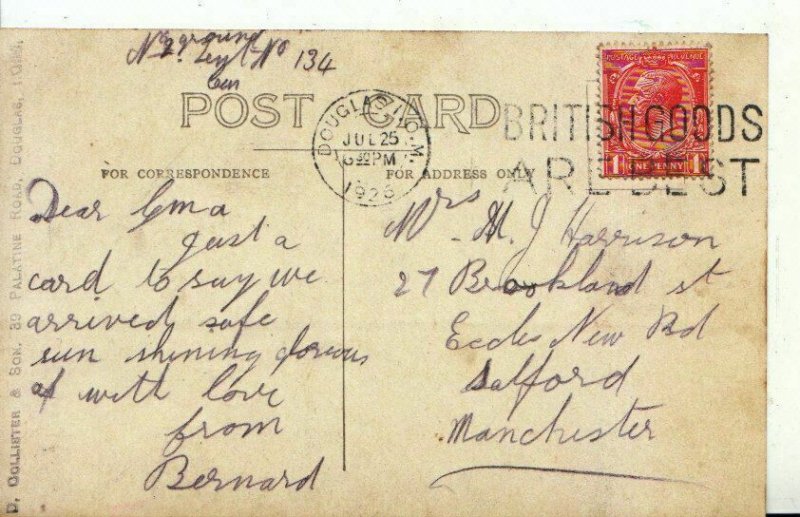 ground
No 134
POST CARD
DOUGLAS I.O.M.
JUL 25
PM
1926
POSTAGE REVENUE
BRITISH GOODS
ARE BEST
FOR CORRESPONDENCE
FOR ADDRESS ONLY
Dear Ema
just a
card to say we
arrived safe
sun shining
with love
from
Bernard
Mrs M. J Harrison
27 Brookland st
Eccles New Rd
Salford
Manchester
D. COLLISTER & SON, 39 PALATINE ROAD, DOUGLAS, I.O.M.